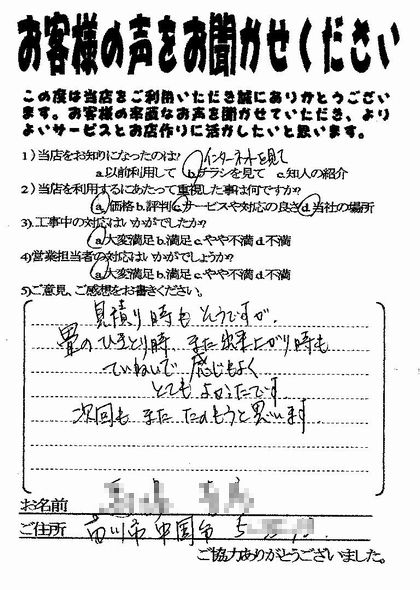 お客様の声をお聞かせください
この度は当店をご利用いただき誠にありがとうござい
ます。お客様の率直なお声を聞かせていただき、より
よいサービスとお店作りに活かしたいと思います。
1)当店をお知りになったのは? インターネットを見て
a.以前利用して b.チラシを見て c.知人の紹介
2)当店を利用するにあたって重視した事は何ですか?
a.価格 b.評判 c.サービスや対応の良さ d.当社の場所
3).工事中の対応はいかがでしたか?
a.大変満足 b.満足 c.やや不満 d.不満
4)営業担当者の対応はいかがでしょうか?
a.大変満足 b.満足 c.やや不満 d.不満
5)ご意見、ご感想をお書きください。
見積り時もそうですが、
畳のひきとり時 また出来上がり時も
ていねいで 感じもよく
とても よかったです。
次回も また たのもうと思います。
お名前
ご住所 市川市 中国台 5
ご協力ありがとうございました。